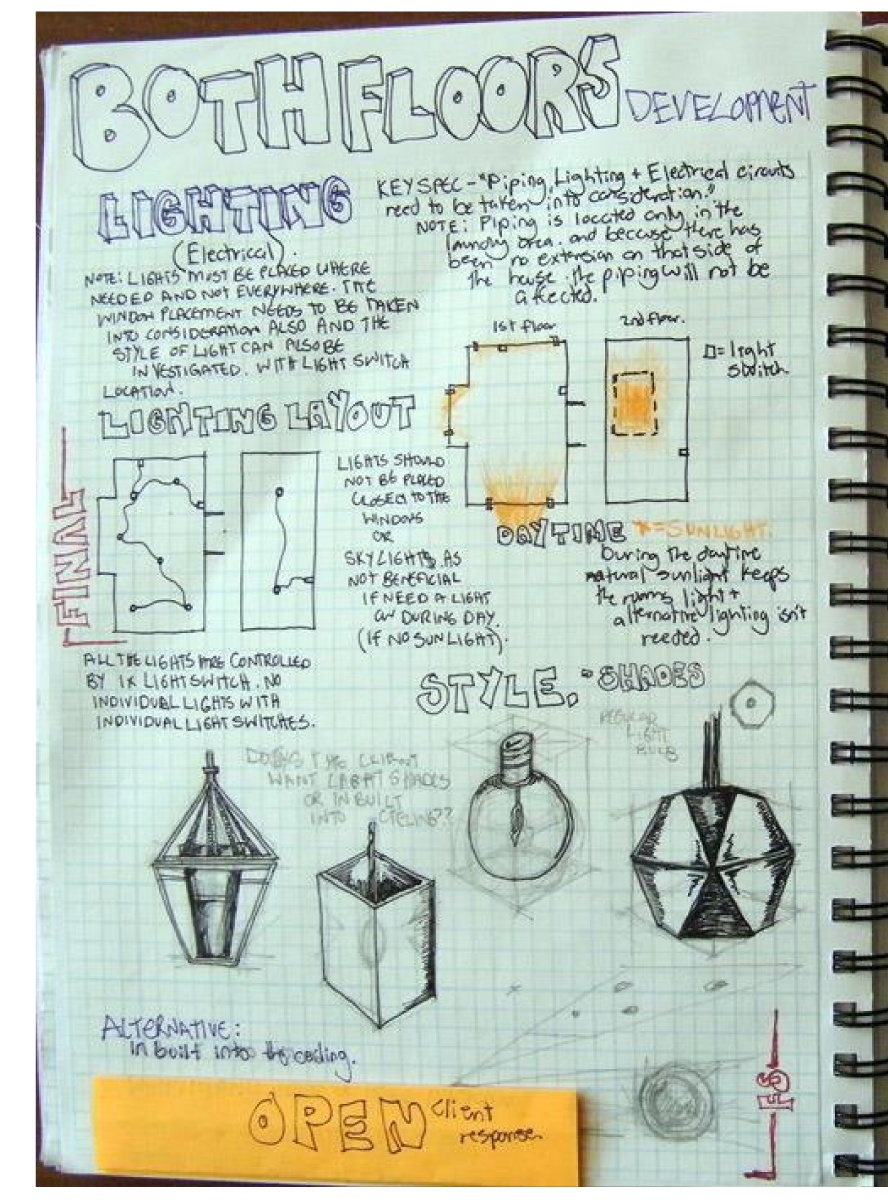 BOTH FLOOR'S
DEVELOPMENT
LIGHTING
(Electrical).
NOTE: LIGHTS MUST BE PLACED WHERE
NEEDED AND NOT EVERYWHERE. THE
WINDOW PLACEMENT NEEDS TO BE TAKEN
INTO CONSIDERATION ALSO AND THE
STYLE OF LIGHT CAN ALSO BE
INVESTIGATED. WITH LIGHT SWITCH
LOCATION.
KEY SPEC - "Piping, Lighting + Electrical circuits
need to be taken into consideration."
NOTE: Piping is located only in the
laundry area. and because there has
been no extension on that side of
the house. the piping will not be
affected.
1st floor
2nd floor.
= light
switch
LIGHTING LAYOUT
FINAL
LIGHTS SHOULD
NOT BE PLACED
CLOSELY TO THE
WINDOWS
OR
SKYLIGHTS AS
NOT BENEFICIAL
IF NEED A LIGHT
ON DURING DAY.
(IF NO SUNLIGHT).
DAYTIME
= SUNLIGHT.
During the daytime
natural sunlight keeps
the rooms light +
alternative lighting isn't
needed.
ALL THE LIGHTS ARE CONTROLLED
BY 1X LIGHTSWITCH. NO
INDIVIDUAL LIGHTS WITH
INDIVIDUAL LIGHT SWITCHES.
STYLE. - SHADES
REGULAR
LIGHT
BULB
DOES THE CLIENT
WANT LIGHT SHADES
OR INBUILT
INTO CIELING??
ALTERNATIVE:
in built into the ceiling.
OPEN
client
response.
FS